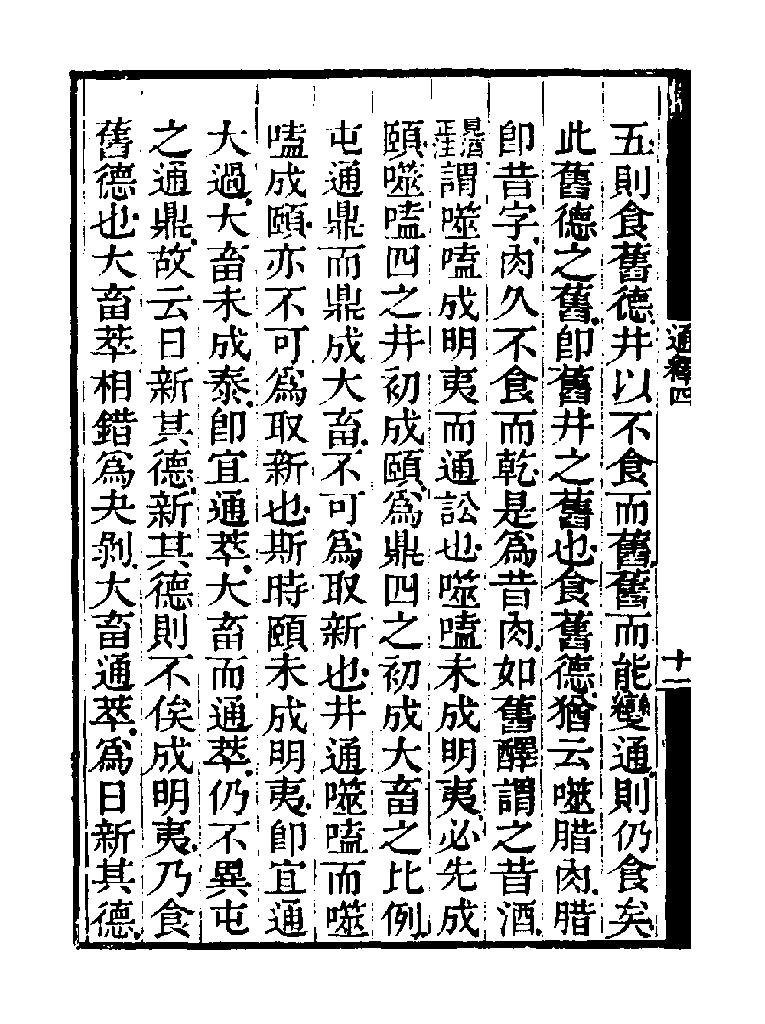 五則食舊德井以不食而舊舊而能變通則仍食矣
此舊德之舊卽舊井之舊也食舊德猶云噬腊肉腊
卽昔字肉久不食而乾是爲昔肉如舊醳謂之昔酒
見酒正注謂噬嗑成明夷而通訟也噬嗑未成明夷必先成
頤噬嗑四之井初成頤爲鼎四之初成大畜之比例
屯通鼎而鼎成大畜不可爲取新也井通噬嗑而噬
嗑成頤亦不可爲取新也斯時頤未成明夷卽宜通
大過大畜未成泰卽宜通萃大畜而通萃仍不異屯
之通鼎故云日新其德新其德則不俟成明夷乃食
舊德也大畜萃相錯爲夬剝大畜通萃爲日新其德
通釋四
十一